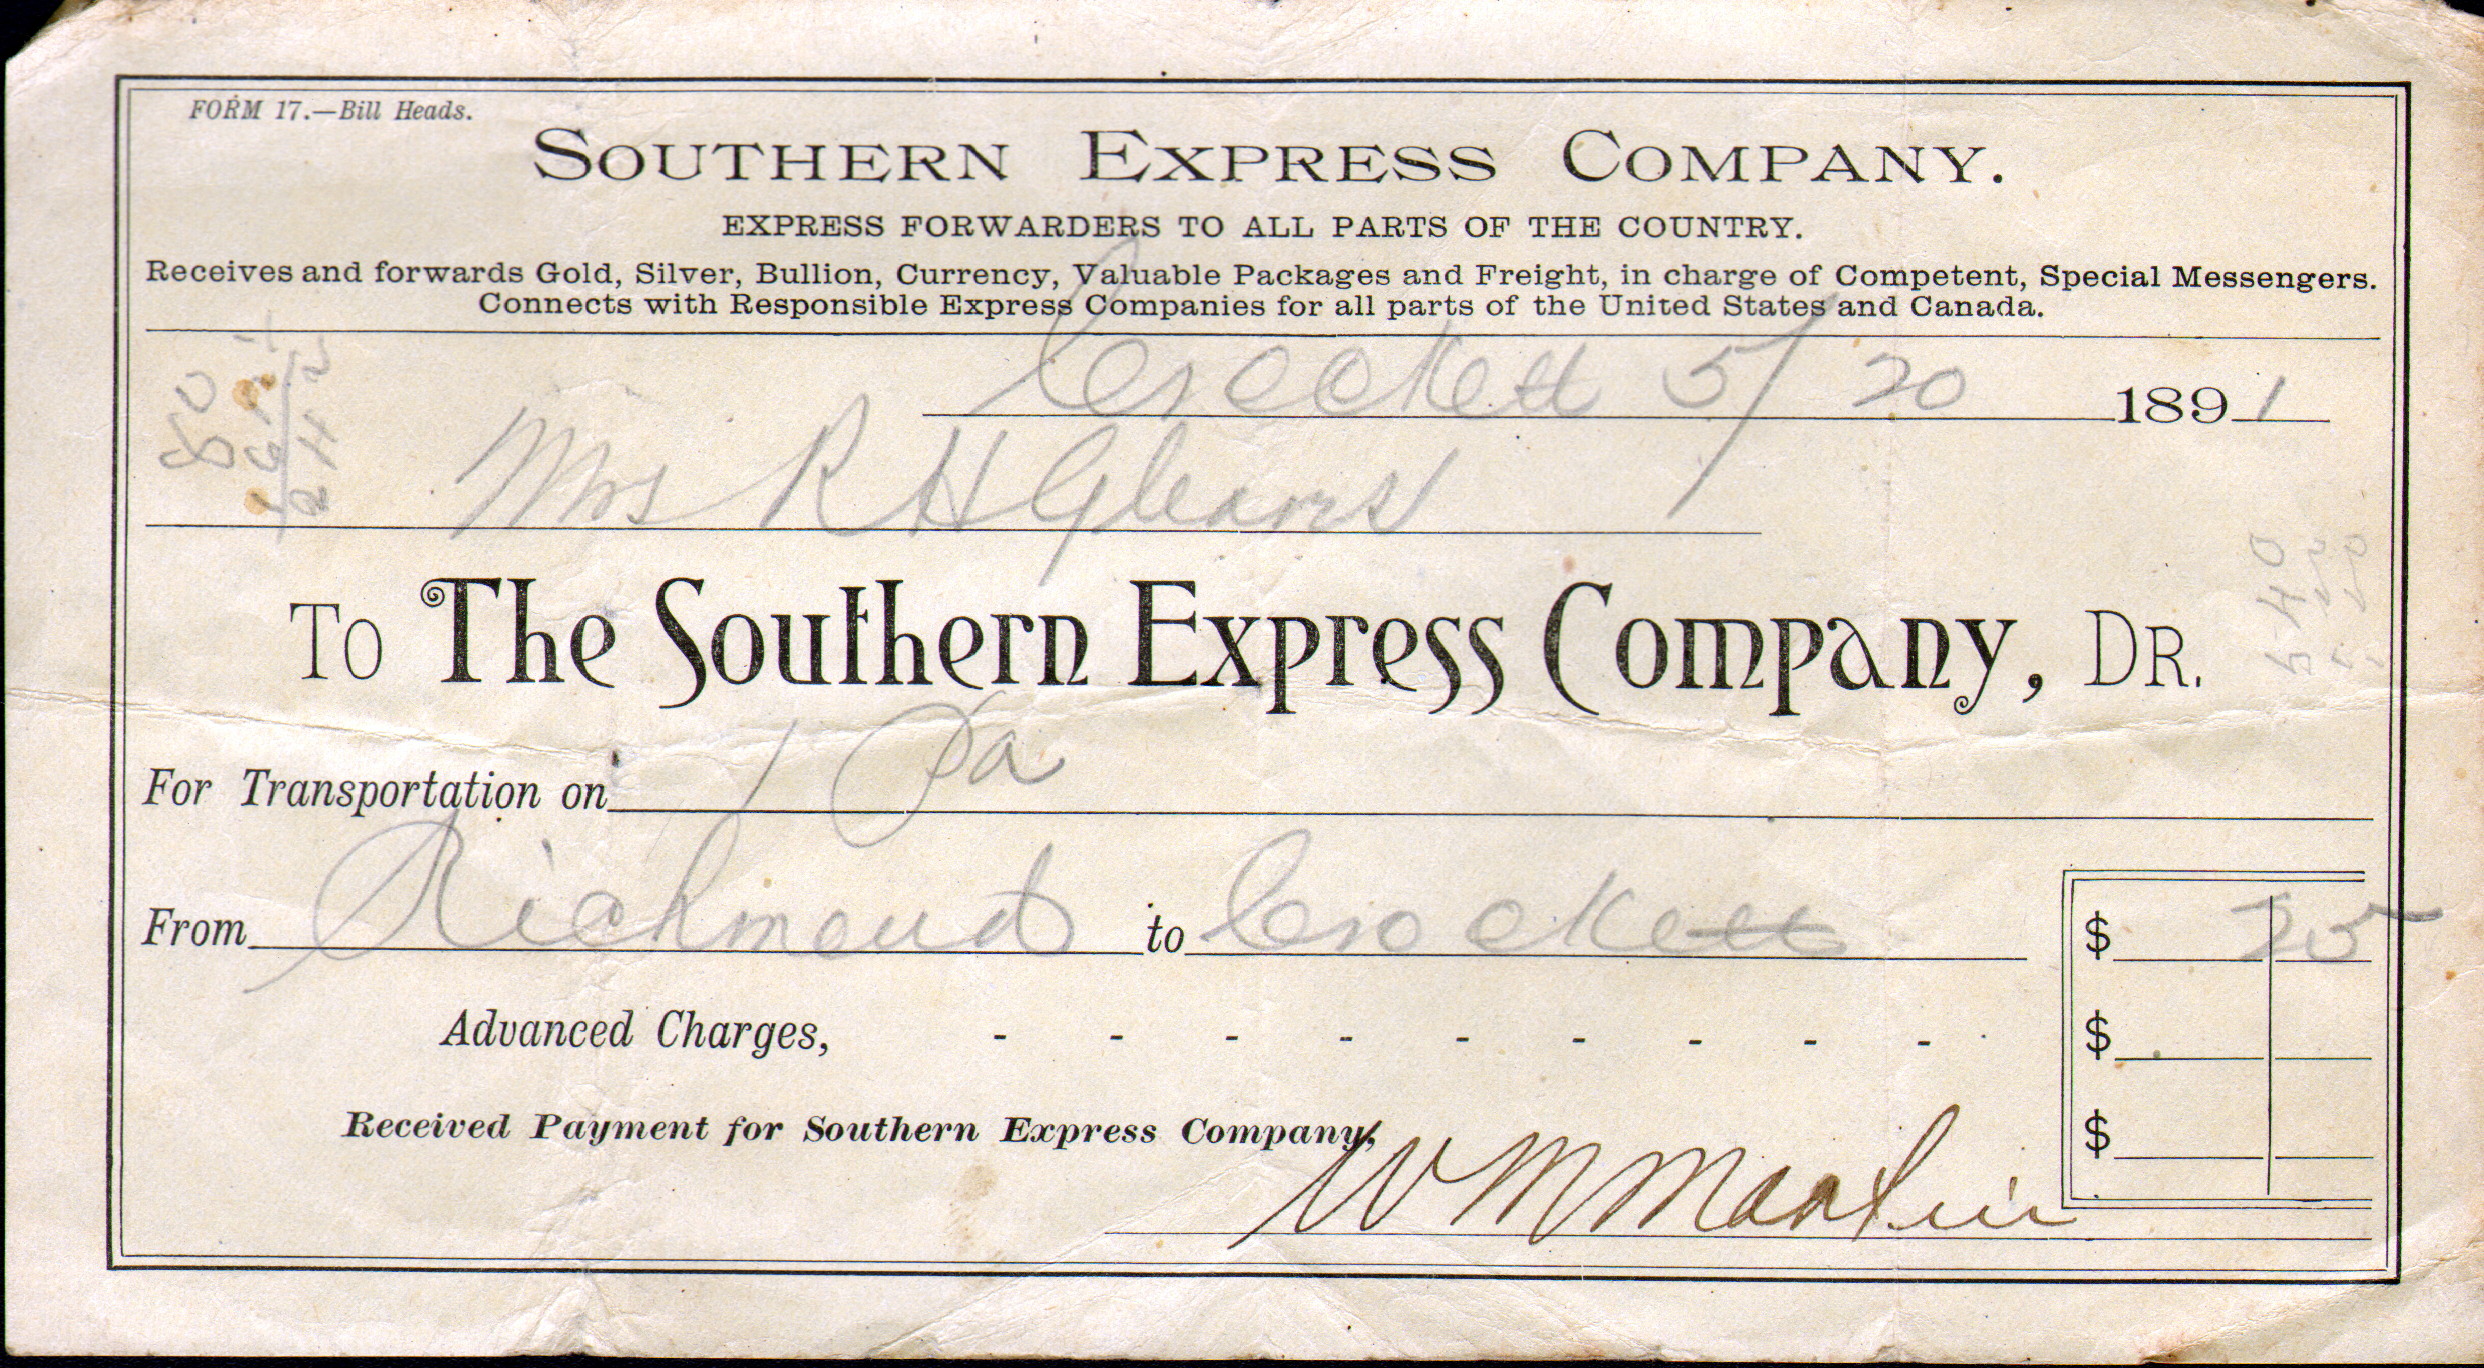 FORM 17.—Bill Heads.
SOUTHERN EXPRESS COMPANY.
EXPRESS FORWARDERS TO ALL PARTS OF THE COUNTRY.
Receives and forwards Gold, Silver, Bullion, Currency, Valuable Packages and Freight, in charge of Competent, Special Messengers.
Connects with Responsible Express Companies for all parts of the United States and Canada.
Crockett 5/20 1891
Mrs R H
TO The Southern Express Company, DR.
For Transportation on 1 Pa
From Richmond to Crockett $ 25
Advanced Charges, - - - - - - - - - $
Received Payment for Southern Express Company, $
W M